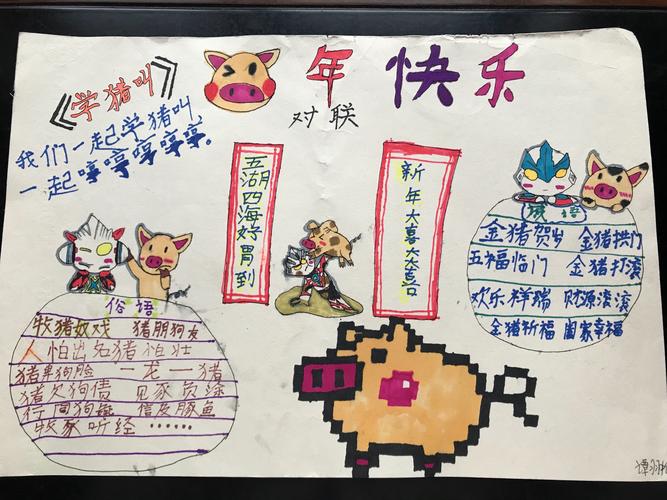 《学猪叫》
年快乐
对联
我们一起学猪叫,
一起哼哼哼哼哼.
五湖四海好胃到
新年大喜大大吉
成语
金猪贺岁 金猪拱门
五福临门 金猪打滚
欢乐祥瑞 财源滚滚
金猪祈福 阖家幸福
俗语
牧猪奴戏 猪朋狗友
人怕出名猪怕壮
猪卑狗险 一龙一猪
猪欠狗债 见豕负涂
行同狗彘 信及豚鱼
牧豕听经 ……